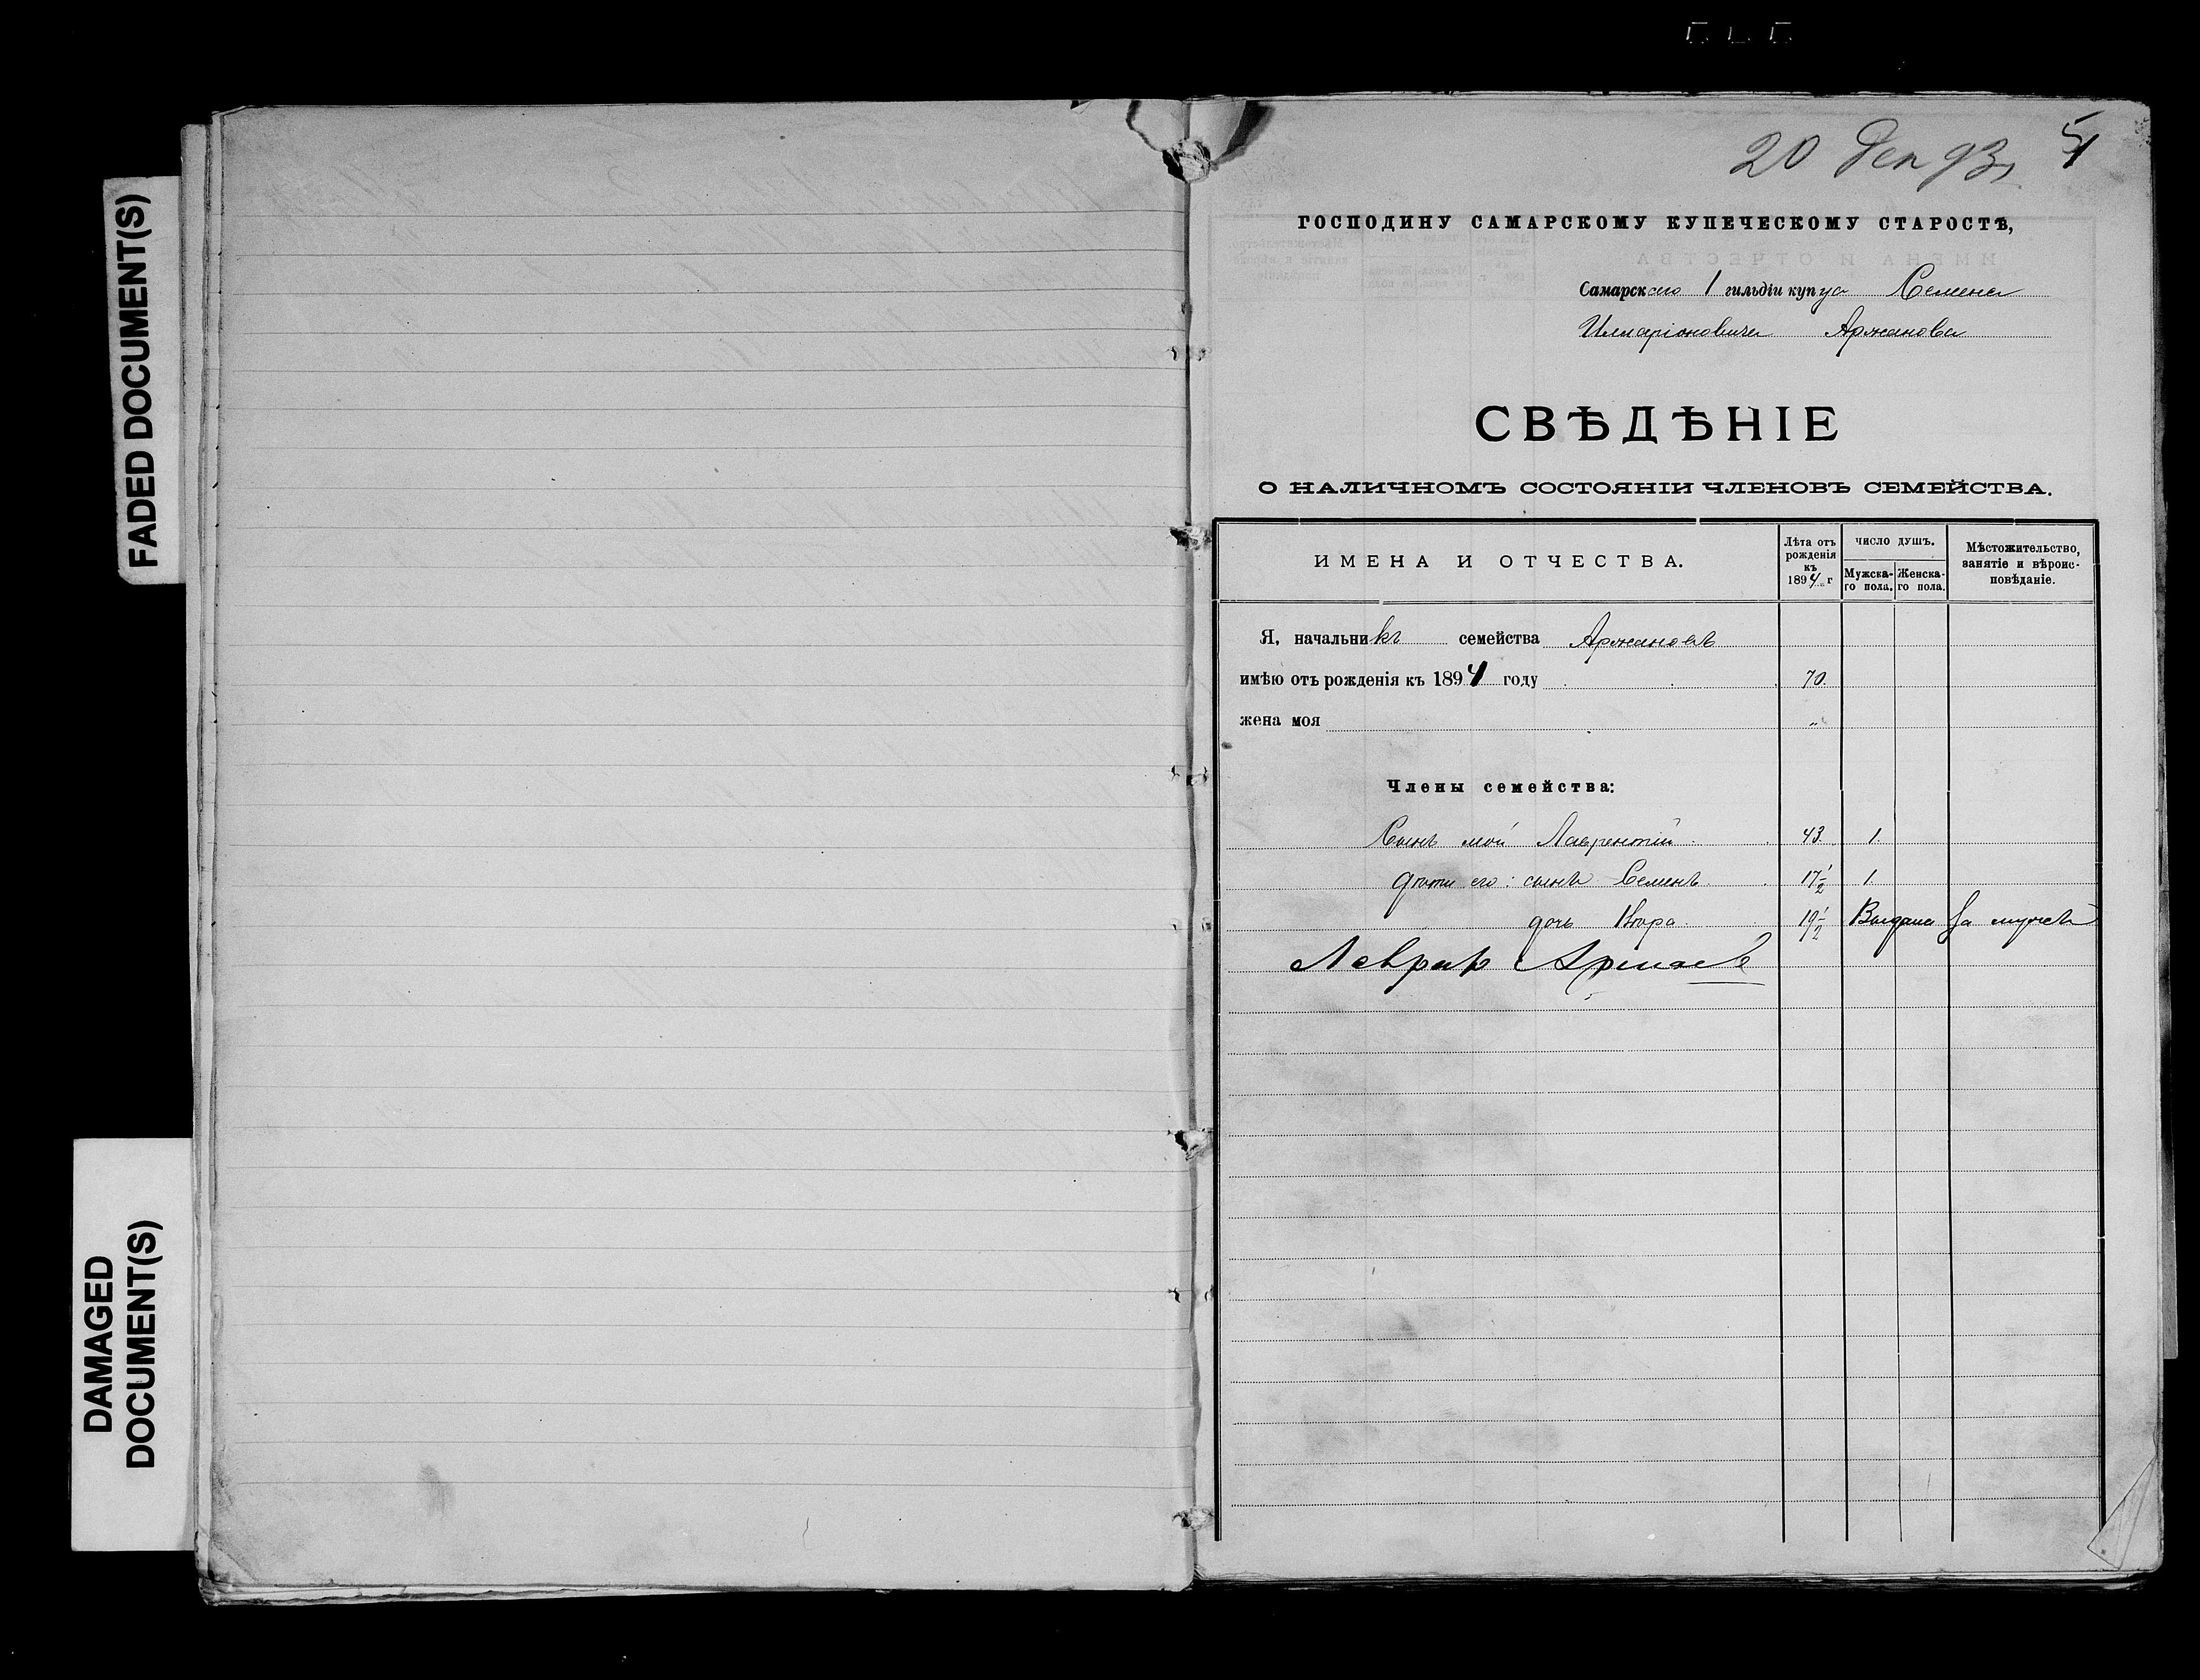 FADED DOCUMENT(S)
DAMAGED
DOCUMENT(S)
20 Дек 93 г
51
ГОСПОДИНУ САМАРСКОМУ КУПЕЧЕСКОМУ СТАРОСТѢ,
Самарскаго 1 гильдіи купца Семена
Илларіоновича Аржанова
СВѢДѢНІЕ
О НАЛИЧНОМЪ СОСТОЯНІИ ЧЛЕНОВЪ СЕМЕЙСТВА.
ИМЕНА И ОТЧЕСТВА.
Лѣта отъ рожденія къ 1894 г
ЧИСЛО ДУШЪ.
Мужска-го пола.
Женска-го пола.
Мѣстожительство, занятіе и вѣроис-повѣданіе.
Я, начальникъ семейства Аржановъ
имѣю отъ рожденія къ 1894 году 70.
жена моя "
Члены семейства:
Сынъ мой Лаврентій 43. 1.
дѣти его: сынъ Семенъ 17 1/2 1
дочь Вѣра 19 1/2 Выдана за мужъ